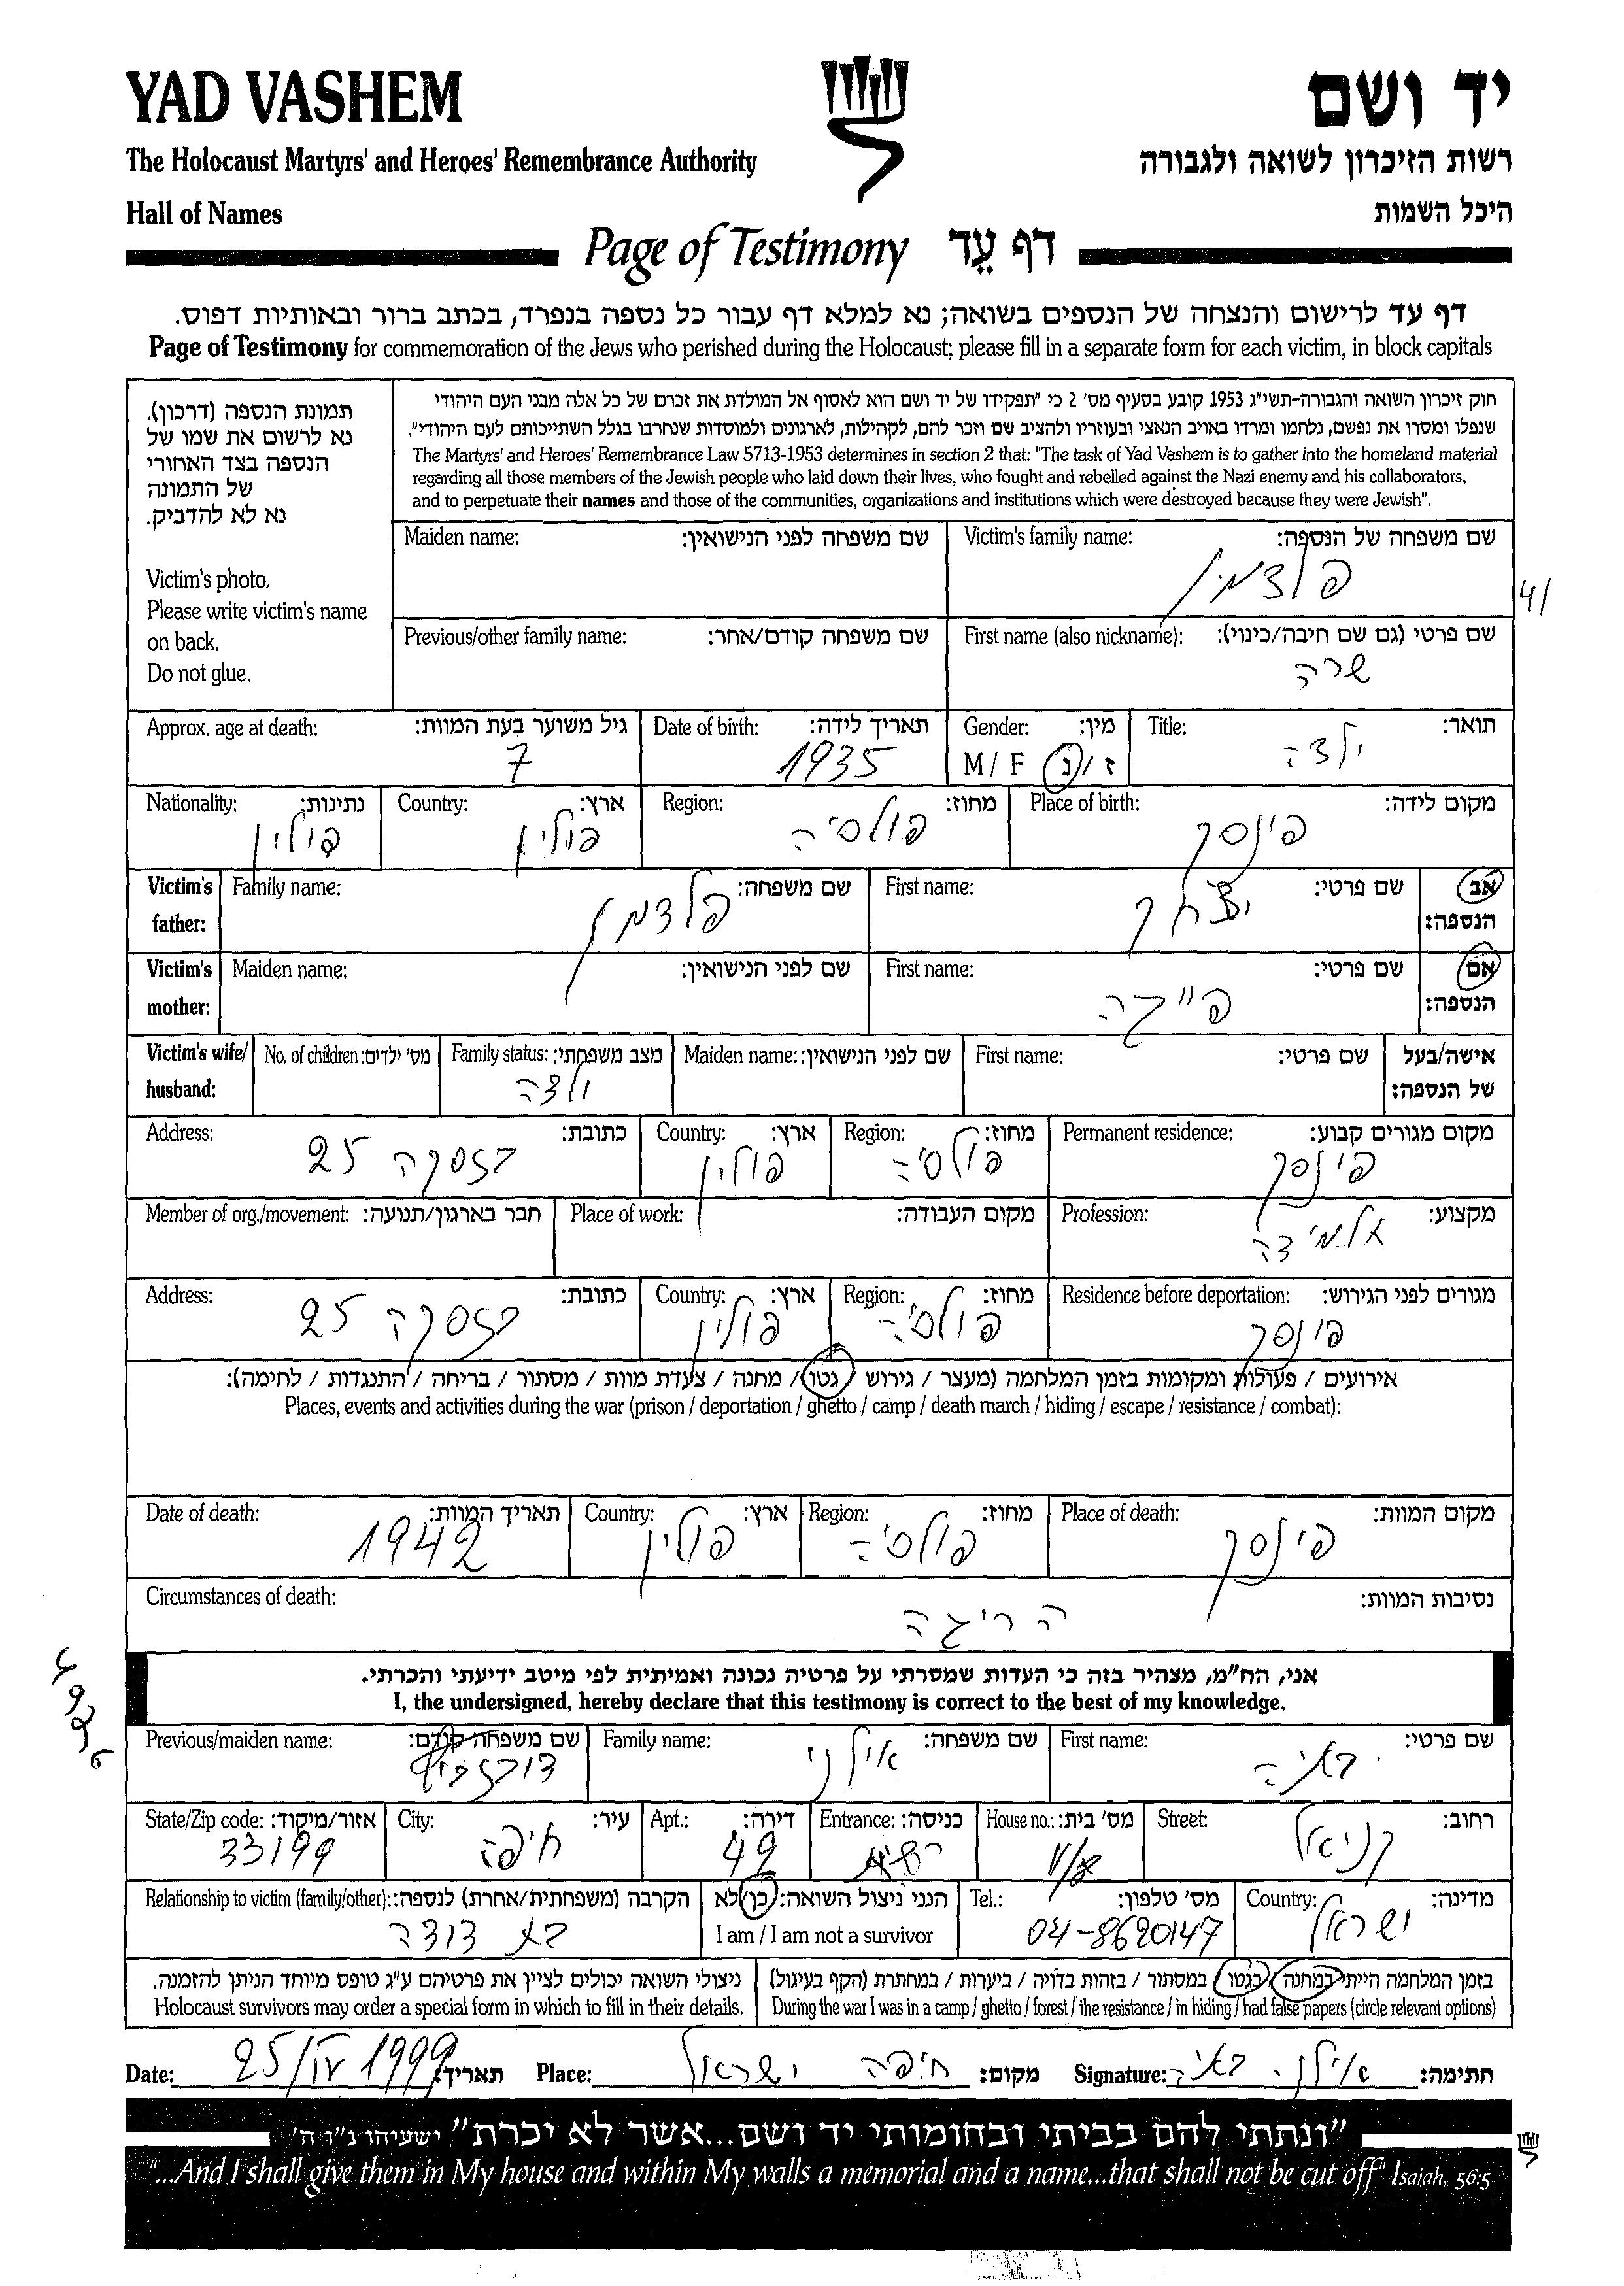 YAD VASHEM
יד ושם
The Holocaust Martyrs' and Heroes' Remembrance Authority
רשות הזיכרון לשואה ולגבורה
Hall of Names
היכל השמות
Page of Testimony דף עֵד
דף עד לרישום והנצחה של הנספים בשואה; נא למלא דף עבור כל נספה בנפרד, בכתב ברור ובאותיות דפוס.
Page of Testimony for commemoration of the Jews who perished during the Holocaust; please fill in a separate form for each victim, in block capitals
תמונת הנספה (דרכון).
נא לרשום את שמו של
הנספה בצד האחורי
של התמונה
נא לא להדביק.
Victim's photo.
Please write victim's name
on back.
Do not glue.
חוק זיכרון השואה והגבורה-תשי"ג 1953 קובע בסעיף מס' 2 כי "תפקידו של יד ושם הוא לאסוף אל המולדת את זכרם של כל אלה מבני העם היהודי
שנפלו ומסרו את נפשם, נלחמו ומרדו באויב הנאצי ובעוזריו ולהציב שם וזכר להם, לקהילות, לארגונים ולמוסדות שנחרבו בגלל השתייכותם לעם היהודי".
The Martyrs' and Heroes' Remembrance Law 5713-1953 determines in section 2 that: "The task of Yad Vashem is to gather into the homeland material
regarding all those members of the Jewish people who laid down their lives, who fought and rebelled against the Nazi enemy and his collaborators,
and to perpetuate their names and those of the communities, organizations and institutions which were destroyed because they were Jewish".
Maiden name: שם משפחה לפני הנישואין: Victim's family name: שם משפחה של הנספה:
פלדמן
41
Previous/other family name: שם משפחה קודם/אחר: First name (also nickname): שם פרטי (גם שם חיבה/כינוי):
שרה
Approx. age at death: גיל משוער בעת המוות: Date of birth: תאריך לידה: Gender: מין: Title: תואר:
7 1935 M / F ז / נ ילדה
Nationality: נתינות: Country: ארץ: Region: מחוז: Place of birth: מקום לידה:
פולין פולין פולסיה פינסק
Victim's father: Family name: שם משפחה: First name: שם פרטי: אב הנספה:
פלדמן יצחק
Victim's mother: Maiden name: שם לפני הנישואין: First name: שם פרטי: אם הנספה:
פייגה
Victim's wife/ husband: No. of children: מס' ילדים: Family status: מצב משפחתי: Maiden name: שם לפני הנישואין: First name: שם פרטי: אישה/בעל של הנספה:
ילדה
Address: כתובת: Country: ארץ: Region: מחוז: Permanent residence: מקום מגורים קבוע:
25 פולין פולסיה פינסק
Member of org./movement: חבר בארגון/תנועה: Place of work: מקום העבודה: Profession: מקצוע:
תלמידה
Address: כתובת: Country: ארץ: Region: מחוז: Residence before deportation: מגורים לפני הגירוש:
25 פולין פולסיה פינסק
אירועים / פעולות ומקומות בזמן המלחמה (מעצר / גירוש / גטו / מחנה / צעדת מוות / מסתור / בריחה / התנגדות / לחימה):
Places, events and activities during the war (prison / deportation / ghetto / camp / death march / hiding / escape / resistance / combat):
Date of death: תאריך המוות: Country: ארץ: Region: מחוז: Place of death: מקום המוות:
1942 פולין פולסיה פינסק
Circumstances of death: נסיבות המוות:
הריגה
אני, הח"מ, מצהיר בזה כי העדות שמסרתי על פרטיה נכונה ואמיתית לפי מיטב ידיעתי והכרתי.
I, the undersigned, hereby declare that this testimony is correct to the best of my knowledge.
Previous/maiden name: שם משפחה קודם: Family name: שם משפחה: First name: שם פרטי:
אילני
State/Zip code: אזור/מיקוד: City: עיר: Apt.: דירה: Entrance: כניסה: House no.: מס' בית: Street: רחוב:
33199 חיפה 49
Relationship to victim (family/other): הקרבה (משפחתית/אחרת) לנספה: הנני ניצול השואה: כן / לא Tel.: מס' טלפון: Country: מדינה:
בת דודה I am / I am not a survivor 04-8620147 ישראל
ניצולי השואה יכולים לציין את פרטיהם ע"ג טופס מיוחד הניתן להזמנה. בזמן המלחמה הייתי במחנה / בגטו / במסתור / בזהות בדויה / ביערות / במחתרת (הקף בעיגול)
Holocaust survivors may order a special form in which to fill in their details. During the war I was in a camp / ghetto / forest / the resistance / in hiding / had false papers (circle relevant options)
Date: 25/IV 1999 תאריך: Place: חיפה ישראל מקום: Signature: חתימה:
"ונתתי להם בביתי ובחומותי יד ושם...אשר לא יכרת" ישעיהו נ"ו ה'
"...And I shall give them in My house and within My walls a memorial and a name...that shall not be cut off" Isaiah, 56:5